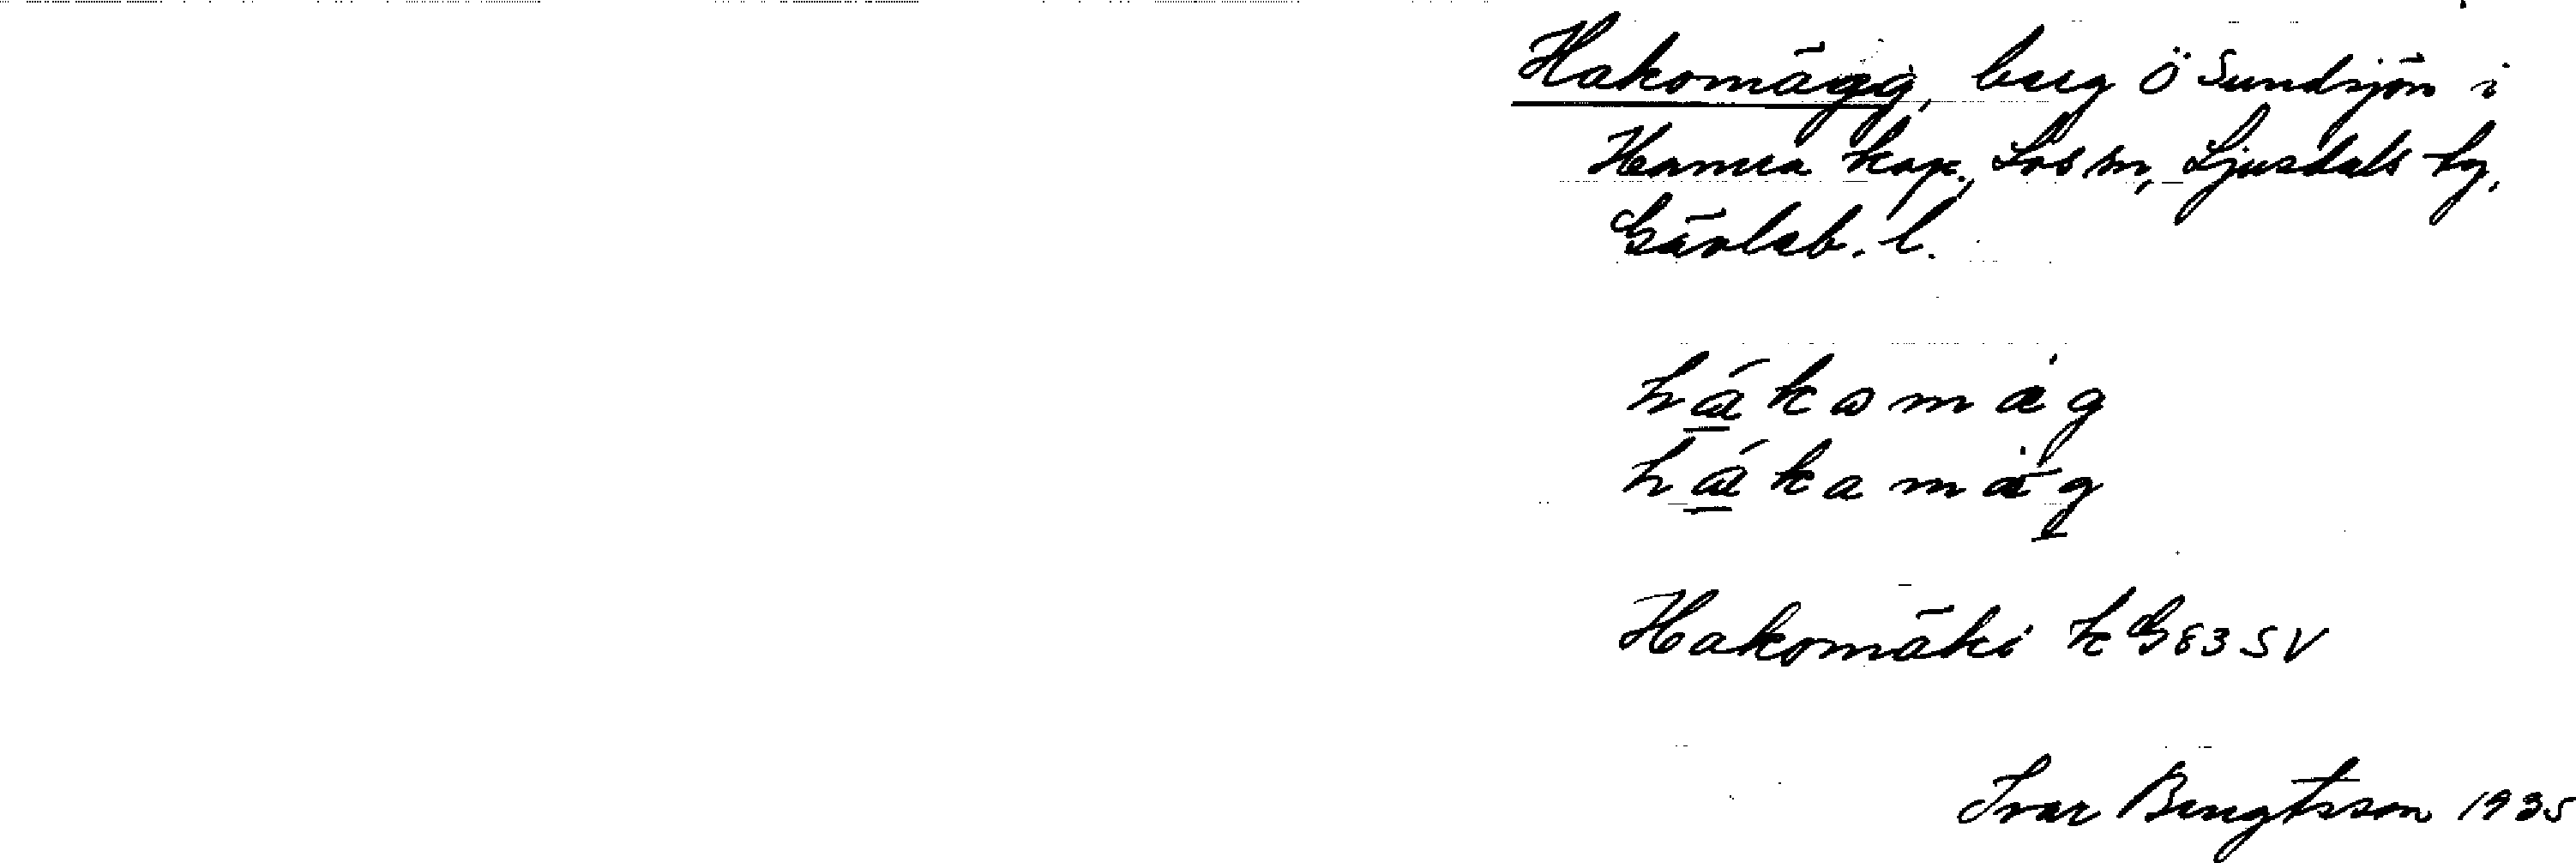 Hakomägg, berg Ö Sundsjön i
Hamra kap., Los sn, Ljusdals tg,
Gävleb. l.
hákomäg
hákamäg
Hakomäki k G83 SV
Ivar Bengtsson 1935